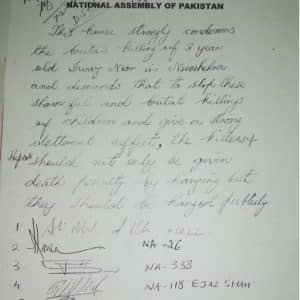 NATIONAL ASSEMBLY OF PAKISTAN
This house strongly condemns
the brutal killing of 8 year
old Noor in Nowshera
and demands that to stop these
shameful and brutal killings
of children and give a strong
deterrent effect, the killers
should not only be given
death penalty by hanging but
they should be hanged publicly
1
2 NA-26
3 NA-333
4 NA-118 EJAZ SHAH